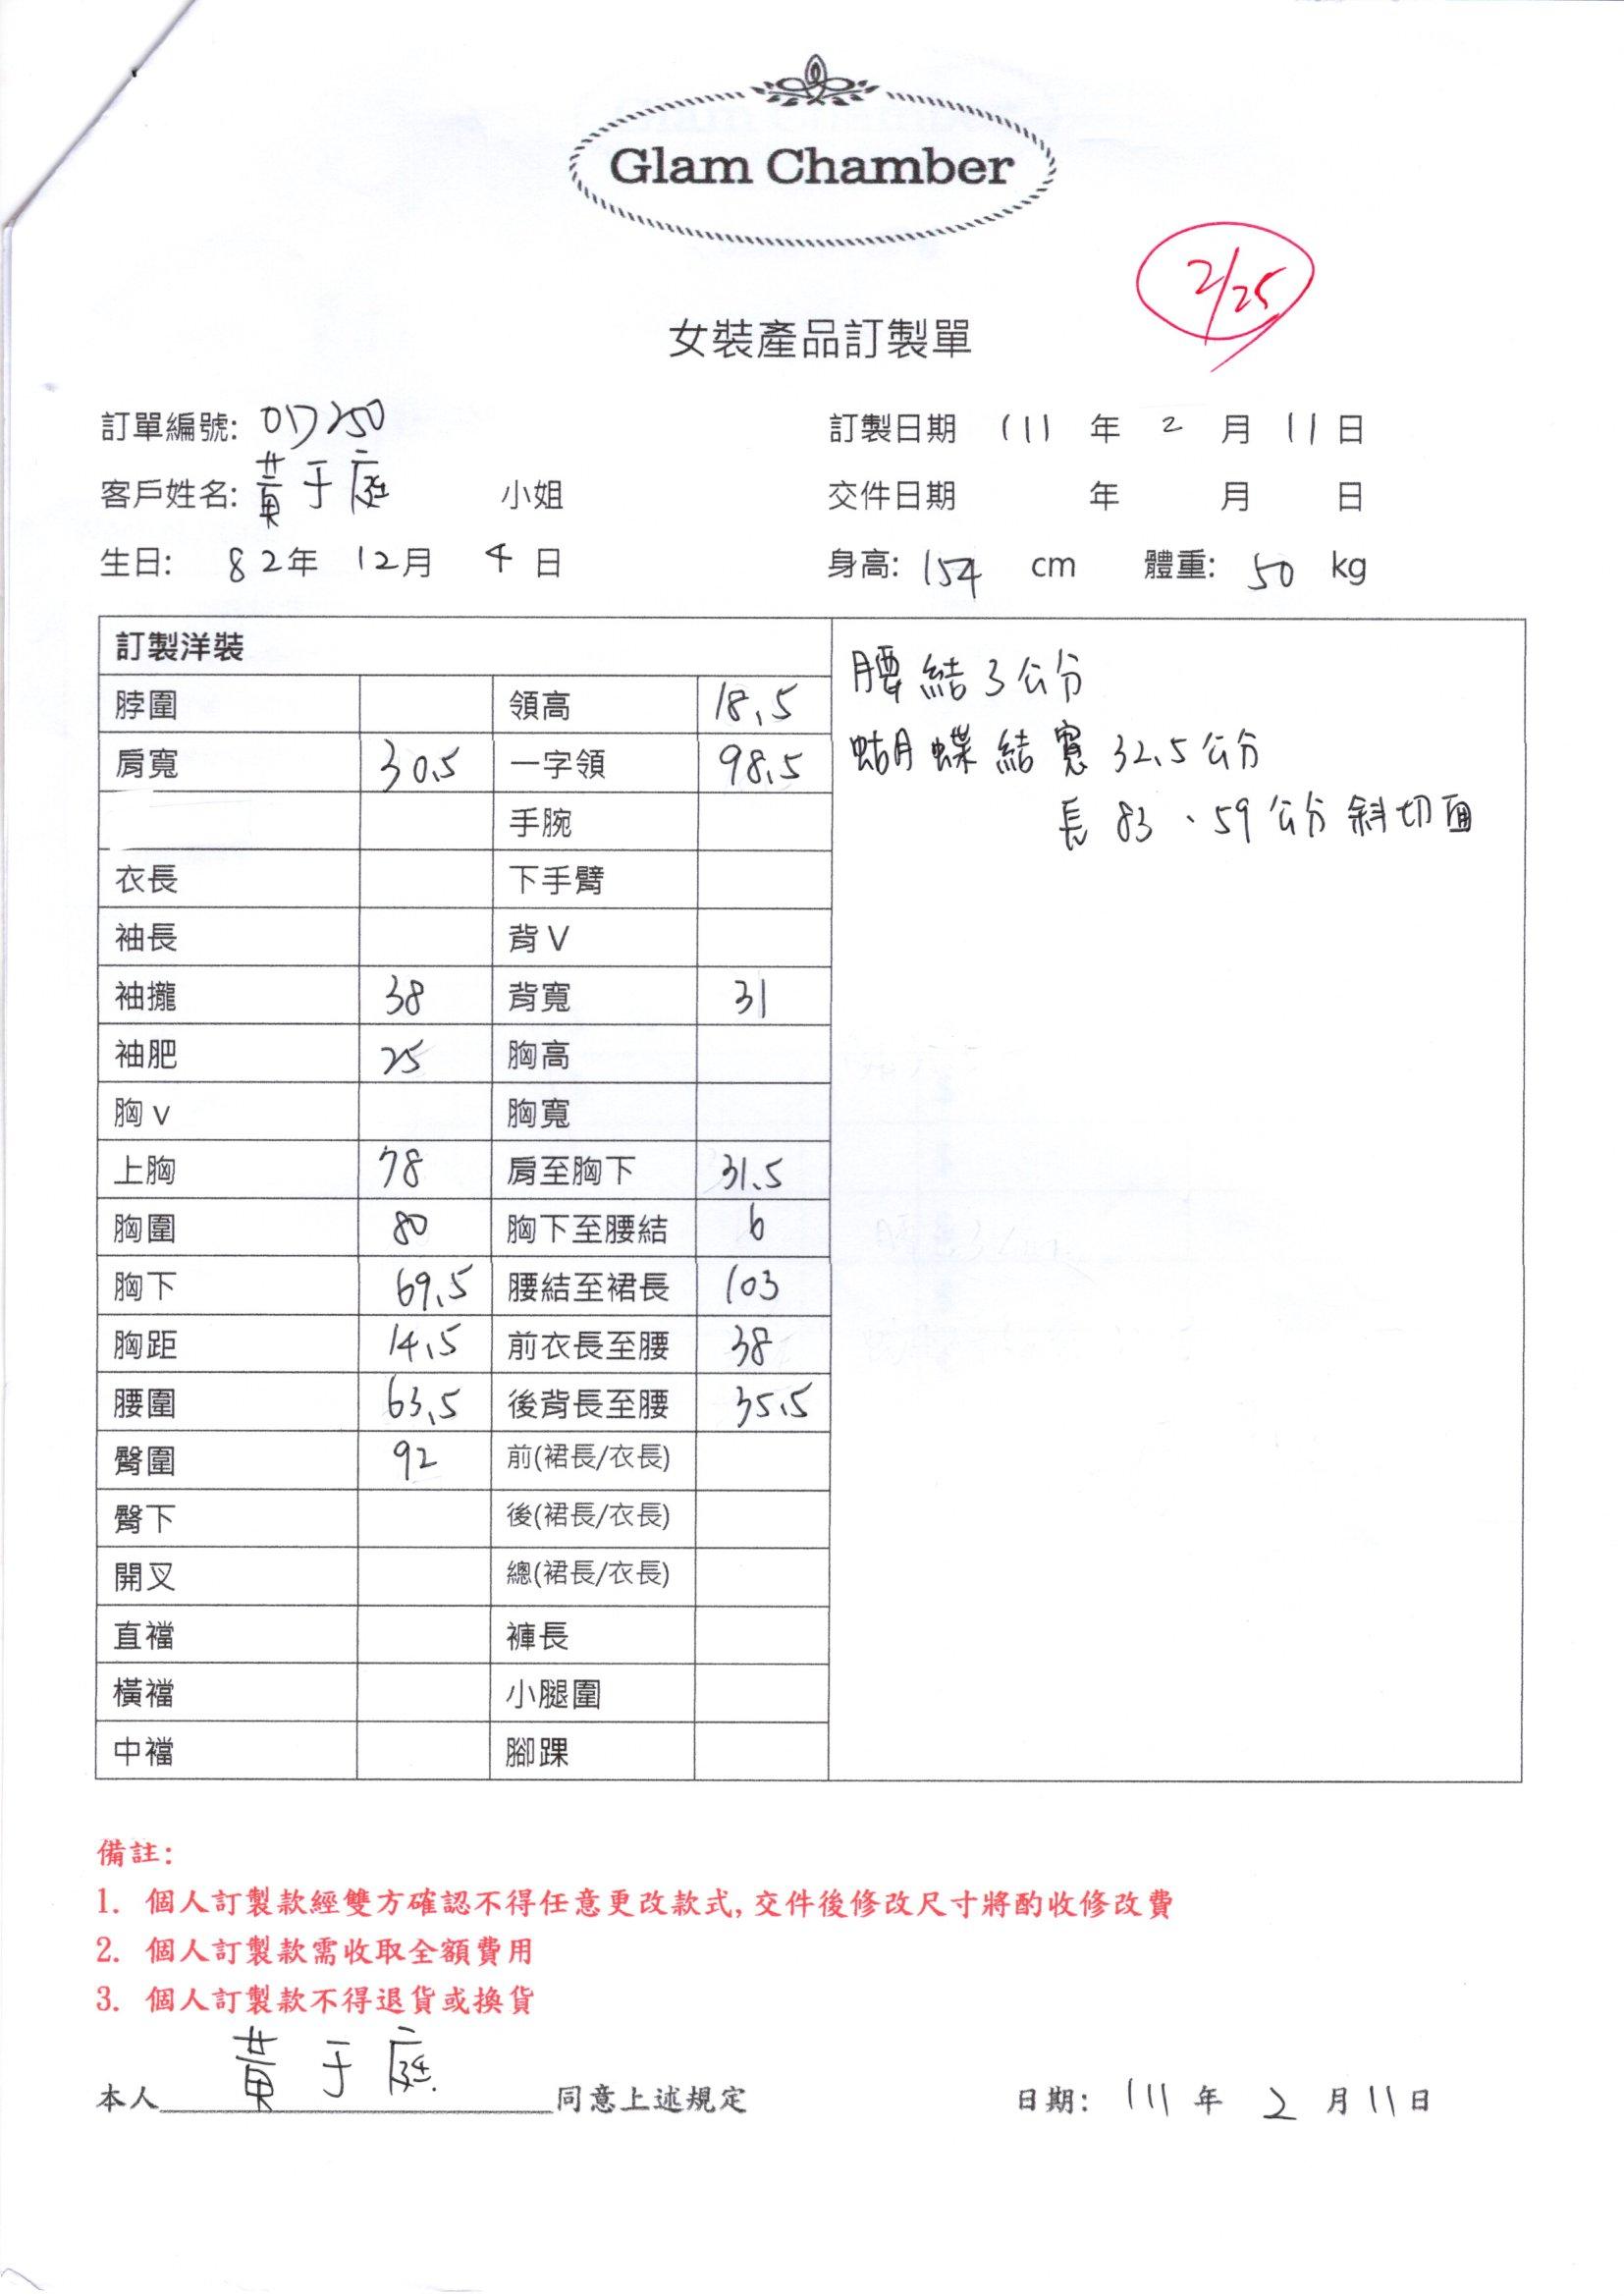 Glam Chamber
2/25
女裝產品訂製單
訂單編號: 017250 訂製日期 111 年 2 月 11 日
客戶姓名: 黃于庭 小姐 交件日期 年 月 日
生日: 82年 12月 4日 身高: 154 cm 體重: 50 kg
訂製洋裝
脖圍 領高 18.5
肩寬 30.5 一字領 98.5
手腕
衣長 下手臂
袖長 背V
袖攏 38 背寬 31
袖肥 25 胸高
胸v 胸寬
上胸 78 肩至胸下 31.5
胸圍 80 胸下至腰結 6
胸下 69.5 腰結至裙長 103
胸距 14.5 前衣長至腰 38
腰圍 63.5 後背長至腰 35.5
臀圍 92 前(裙長/衣長)
臀下 後(裙長/衣長)
開叉 總(裙長/衣長)
直襠 褲長
橫襠 小腿圍
中襠 腳踝
腰結3公分
蝴蝶結寬 32.5公分
長 83、59公分斜切面
備註:
1. 個人訂製款經雙方確認不得任意更改款式,交件後修改尺寸將酌收修改費
2. 個人訂製款需收取全額費用
3. 個人訂製款不得退貨或換貨
本人 黃于庭 同意上述規定 日期: 111 年 2 月 11 日